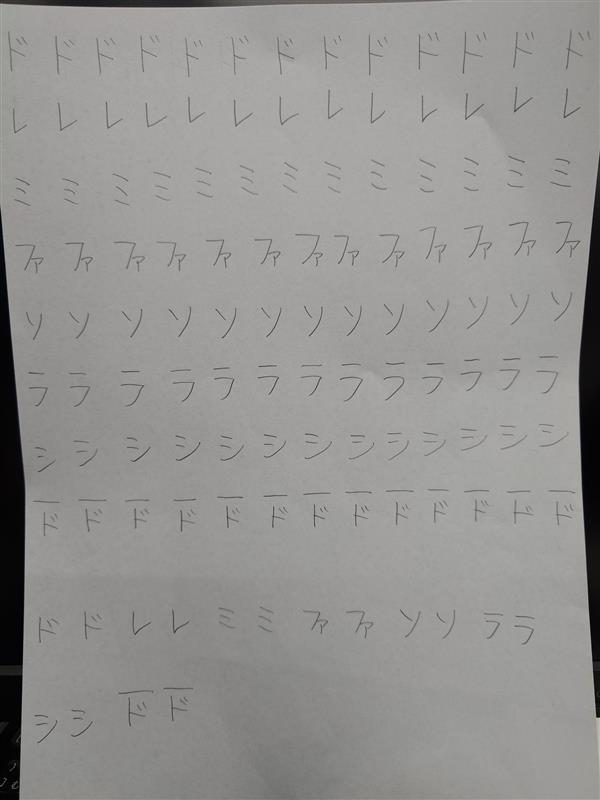 ドドドドドドドドドドドドド
レレレレレレレレレレレレレ
ミミミミミミミミミミミミミ
ファファファファファファファファファファファファファ
ソソソソソソソソソソソソソ
ラララララララララララララ
シシシシシシシシシシシシシ
ドドドドドドドドドドドドド
ドドレレミミファファソソララ
シシドド